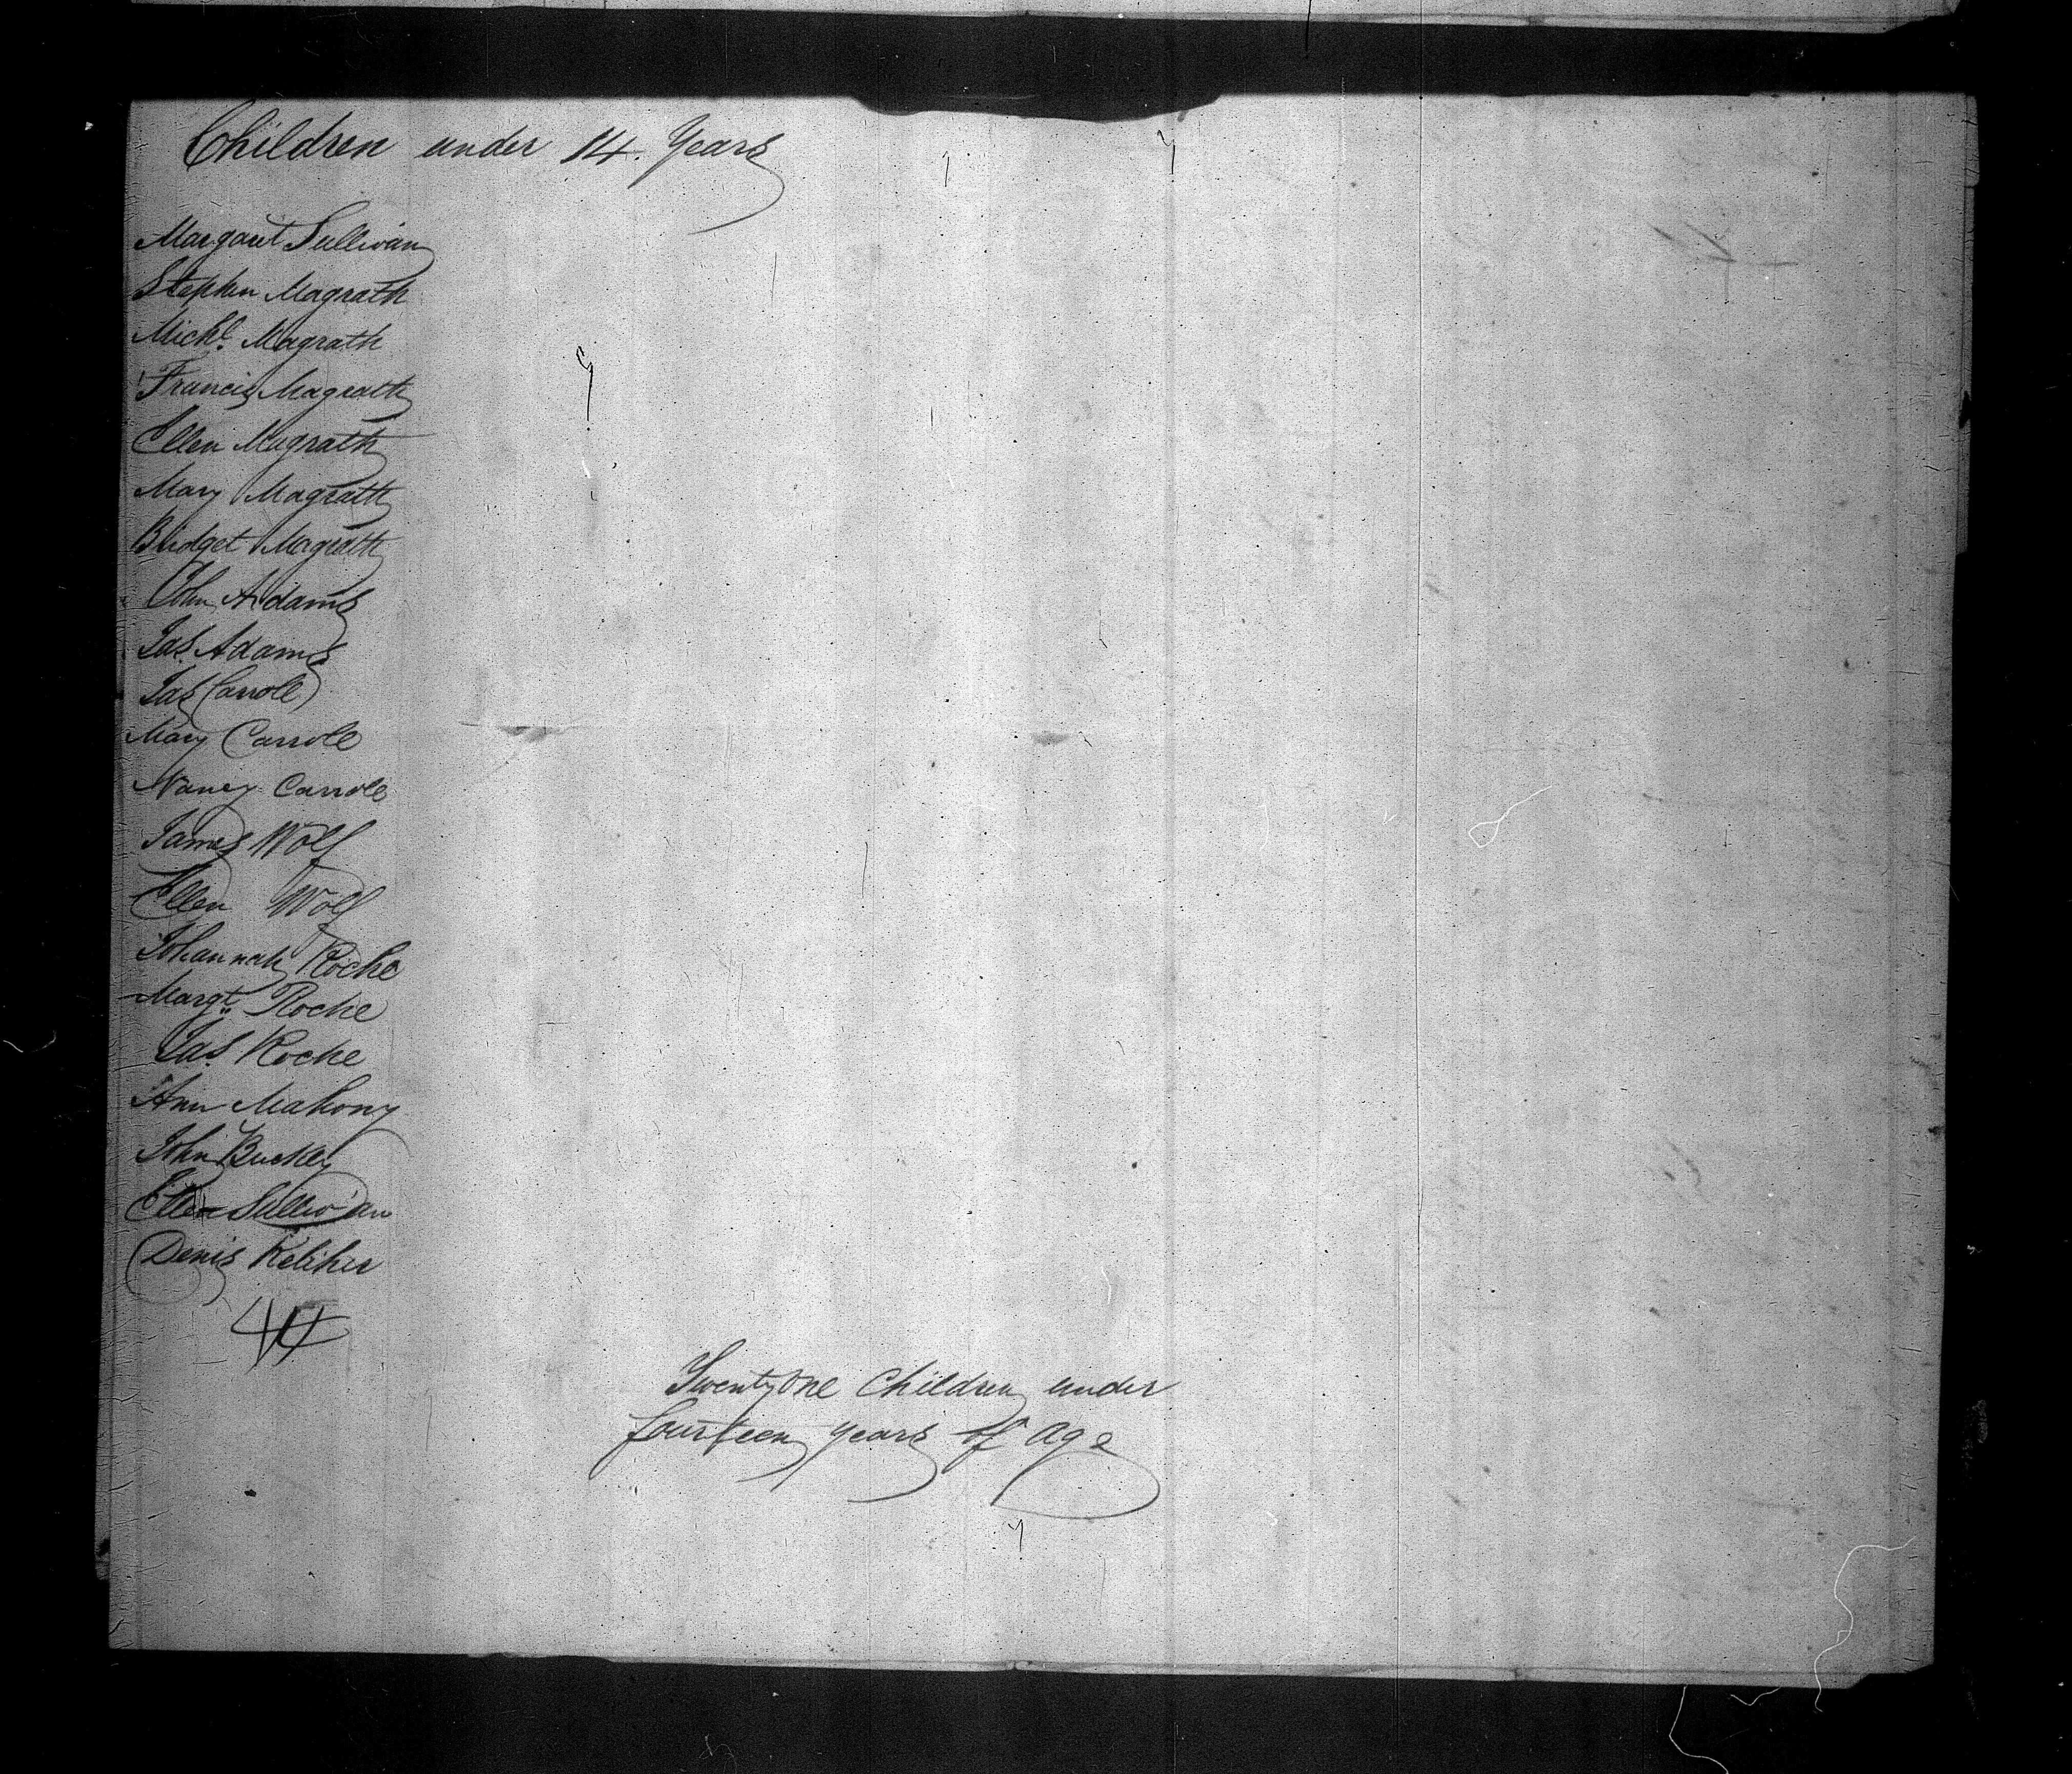 Children under 14. Years
Margaret Sullivan
Stephen Magrath
Michl. Magrath
Francis Magrath
Ellen Magrath
Mary Magrath
Bridget Magrath
John Adams
Jas. Adams
Jas Carroll
Mary Carroll
Nancy Carroll
James Wolf
Ellen Wolf
Johannah Roche
Margt. Roche
Jas. Roche
Ann Mahony
John Buckley
Ellen Sullivan
Denis Keliher
Twenty One Children under
fourteen years of age